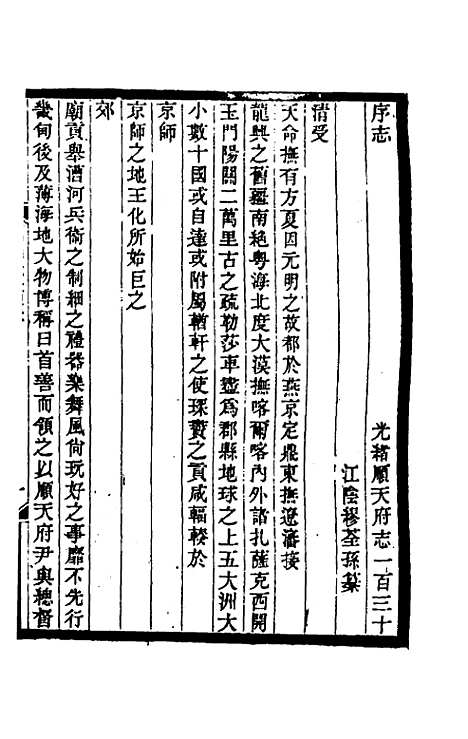 序志
光緒順天府志一百三十
江陰繆荃孫纂
清受
天命撫有方夏因元明之故都於燕京定鼎東撫遼瀋接
龍興之舊疆南絕粵海北度大漠撫喀爾喀內外諸扎薩克西開
玉門陽關二萬里古之疏勒莎車盡爲郡縣地球之上五大洲大
小數十國或自達或附屬輶軒之使琛賮之貢咸輻輳於
京師
京師之地王化所始巨之
郊
廟貢舉漕河兵衞之制細之禮器樂舞風尙玩好之事靡不先行
畿甸後及薄海地大物博稱曰首善而領之以順天府尹與總督